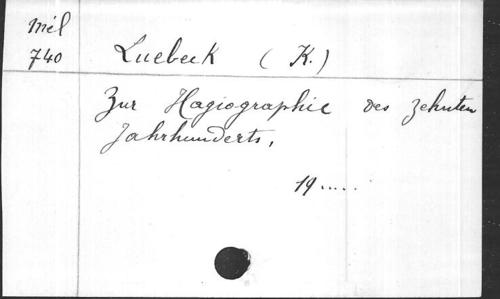 Mél
740
Luebeck (K.)
Zur Hagiographie des zehnten
Jahrhunderts,
19.....